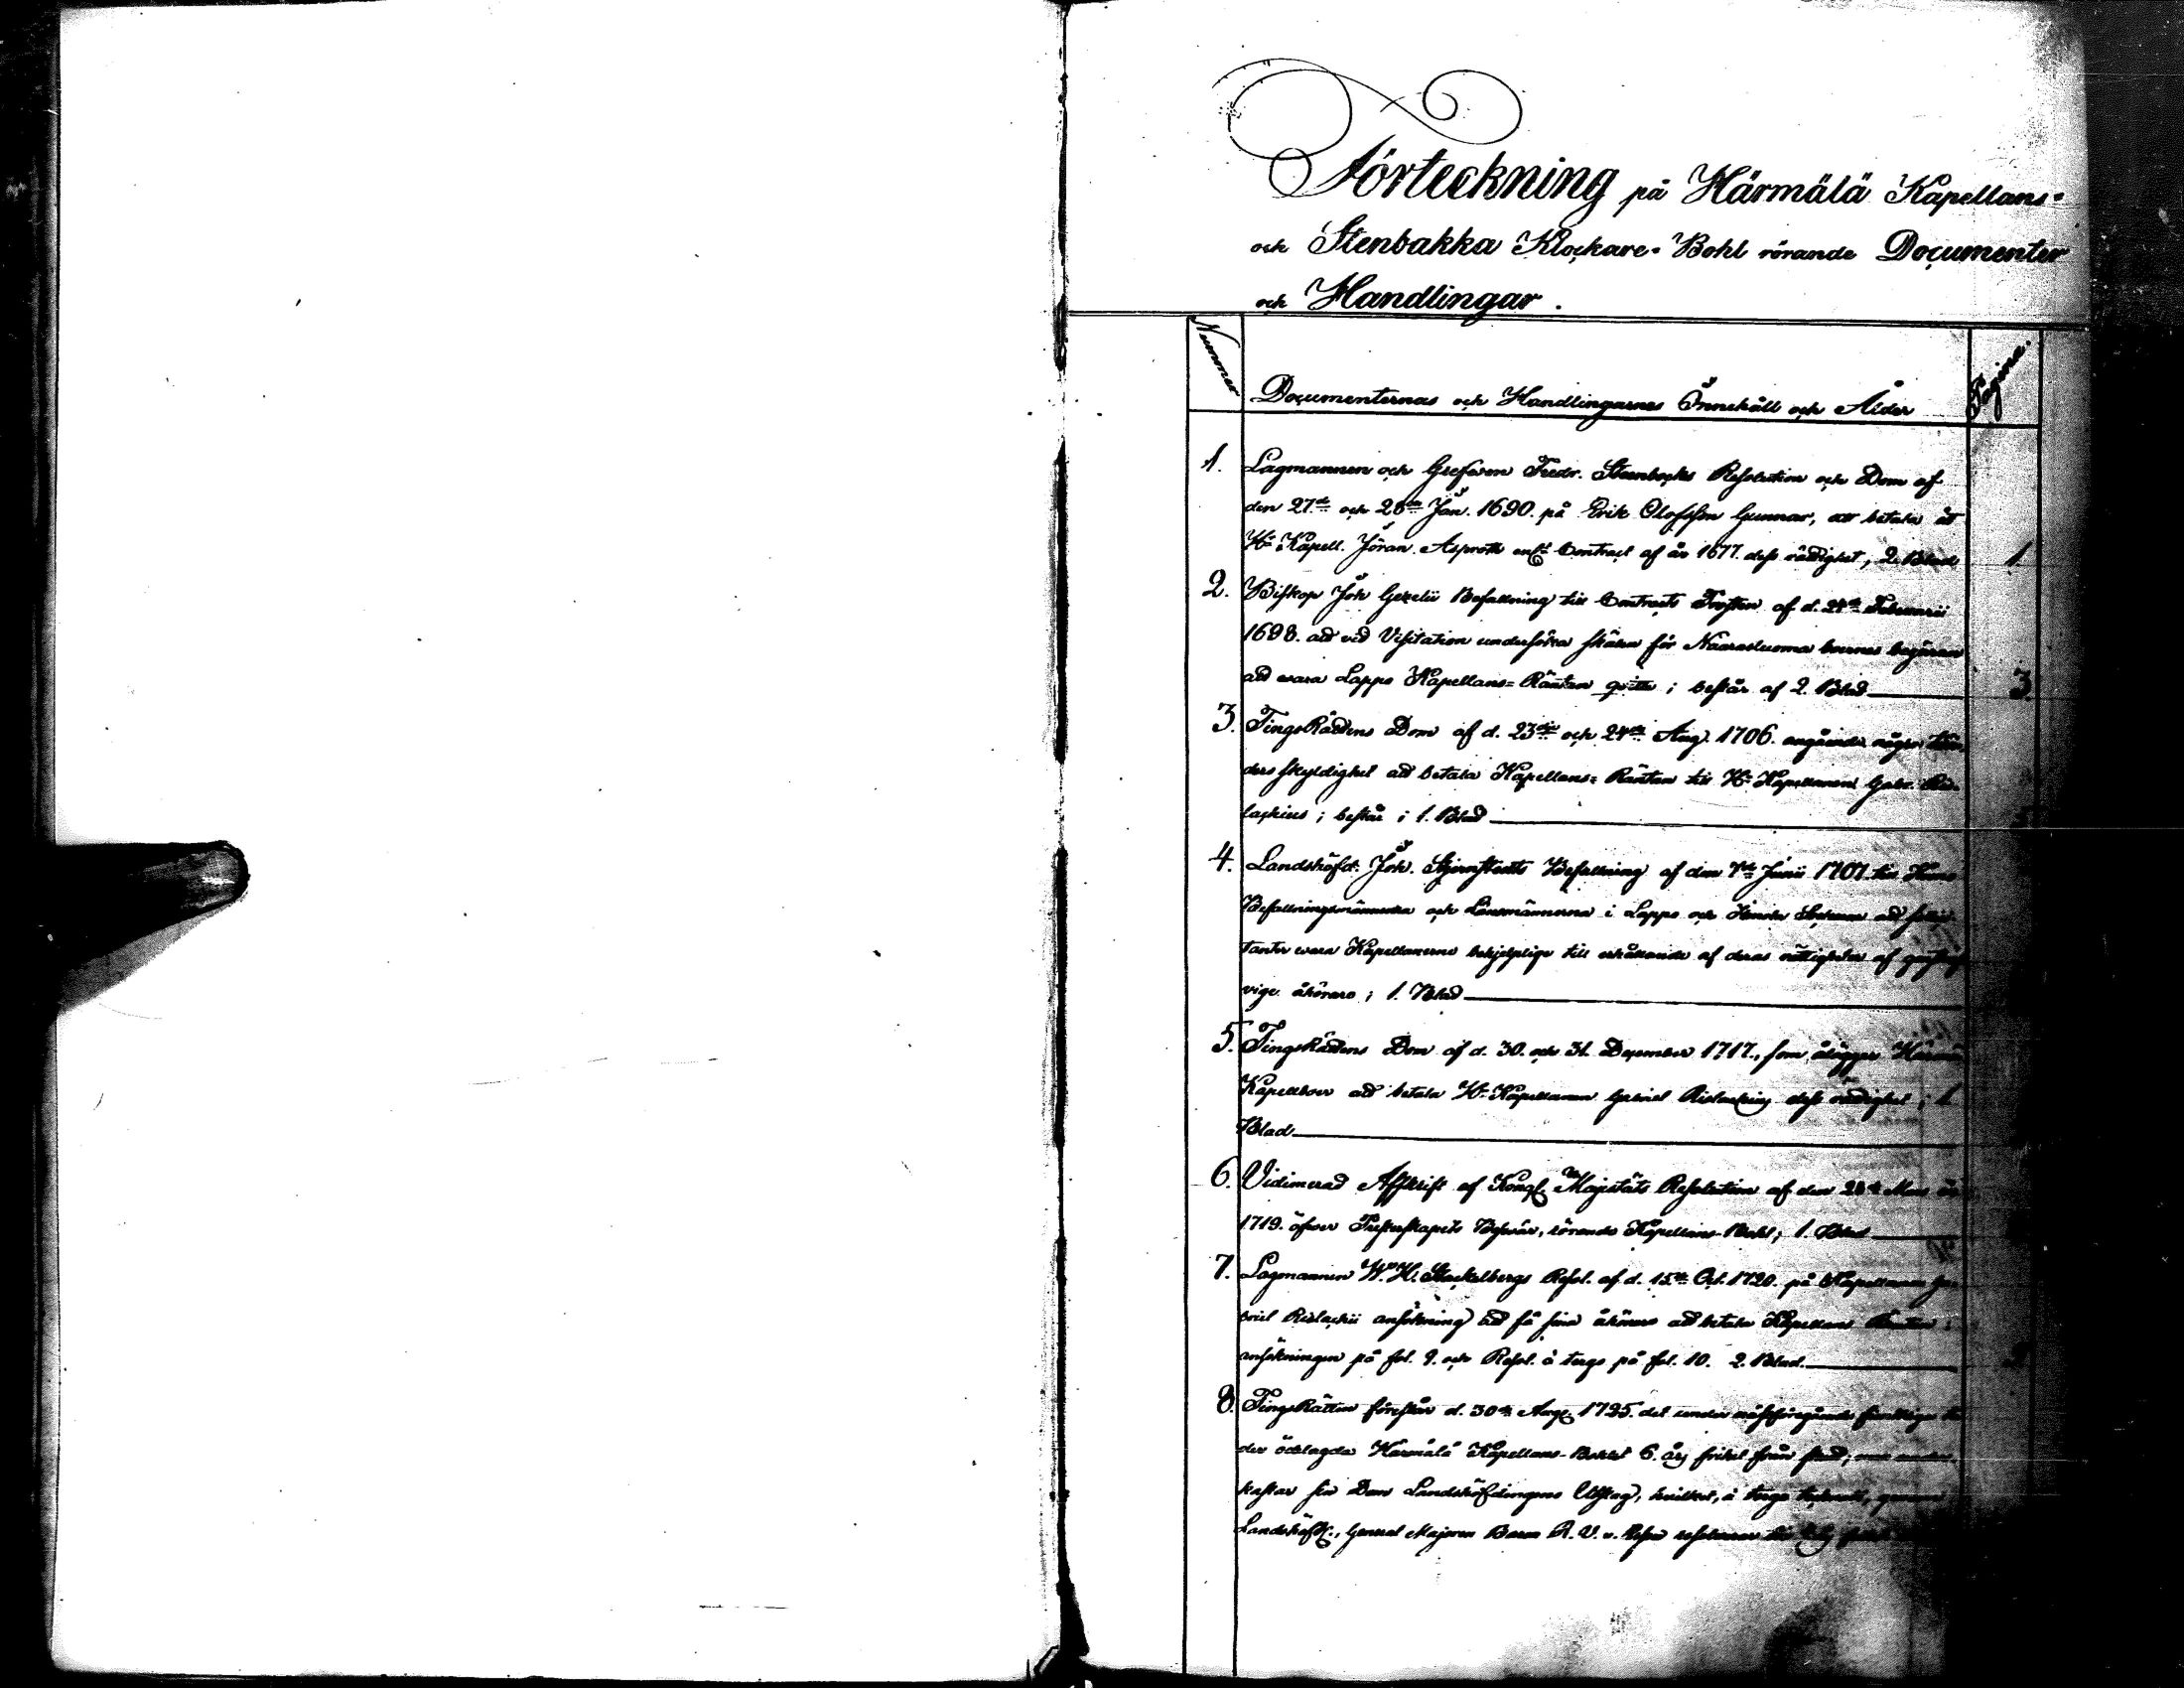 Förteckning på Härmälä Kapellans-
och Stenbakka Klockare-Bohl rörande Documenter
och Handlingar.
Nummer
Documenternas och Handlingarnes Innehåll och Ålder
Pagina.
1. Lagmannen och Grefven Fredr. Stenbocks Resolution och Dom af
den 27de och 28de Jan. 1690. på Erik Olofsson Gunnar, att betala åt
Hr Kapell. Jöran Asproth enl. Contract af år 1677. dess rättighet, 2. Blad 1.
2. Biskop Joh Gezelii Befallning till Contracts Prosten af d. 24de Februarii
1698. ad vid Visitation undersöka skälen för Naarasluoma boernes begäran
ad vara Lappo Kapellans-Räntan qvitte; består af 2. Blad 3.
3. TingsRättens Dom af d. 23die och 24de Aug. 1706. angående några
ders skyldighet ad betala Kapellans-Räntan till Hr Kapellanen Gabr.
lachius; består i 1. Blad
4. Landshöfd: Joh. Stjernstedts Befallning af den 7de Junii 1707. till
Befallningsmännerna och Länsmännerna i Lappo och Socknar ad
tanter vara Kapellanerne behjelplige till erhållande af deras rättigheter af
vige åhörare; 1. Blad
5. TingsRättens Dom af d. 30. och 31. December 1717., som ålägger
Kapellboer ad betala Hr Kapellanen Gabriel Rislachius dess rättighet; 1.
Blad
6. Vidimerad Afskrift af Kongl. Majestäts Resolution af den
1719. öfver Presterskapets Besvär, rörande Kapellans-Bohl; 1. Blad
7. Lagmannen W. H. Stackelbergs Resol. af d. 15de Oct. 1720. på Kapellanen Ga-
briel Rislachii ansökning ad få sina åhörare ad betala Kapellans Räntan;
ansökningen på fol. 9. och Resol. à tergo på fol. 10. 2. Blad. 9
8. TingsRätten föreslår d. 30de Aug. 1725. det under nästföregående fiendtliga ti-
der ödelagda Härmälä Kapellans-Bohlet 6. årj frihet från
kastar sin Dom Landshöfdingens Utslag, hvilket, à tergo
Landshöfd., General Majoren Baron R. W. v. Essen resolverar